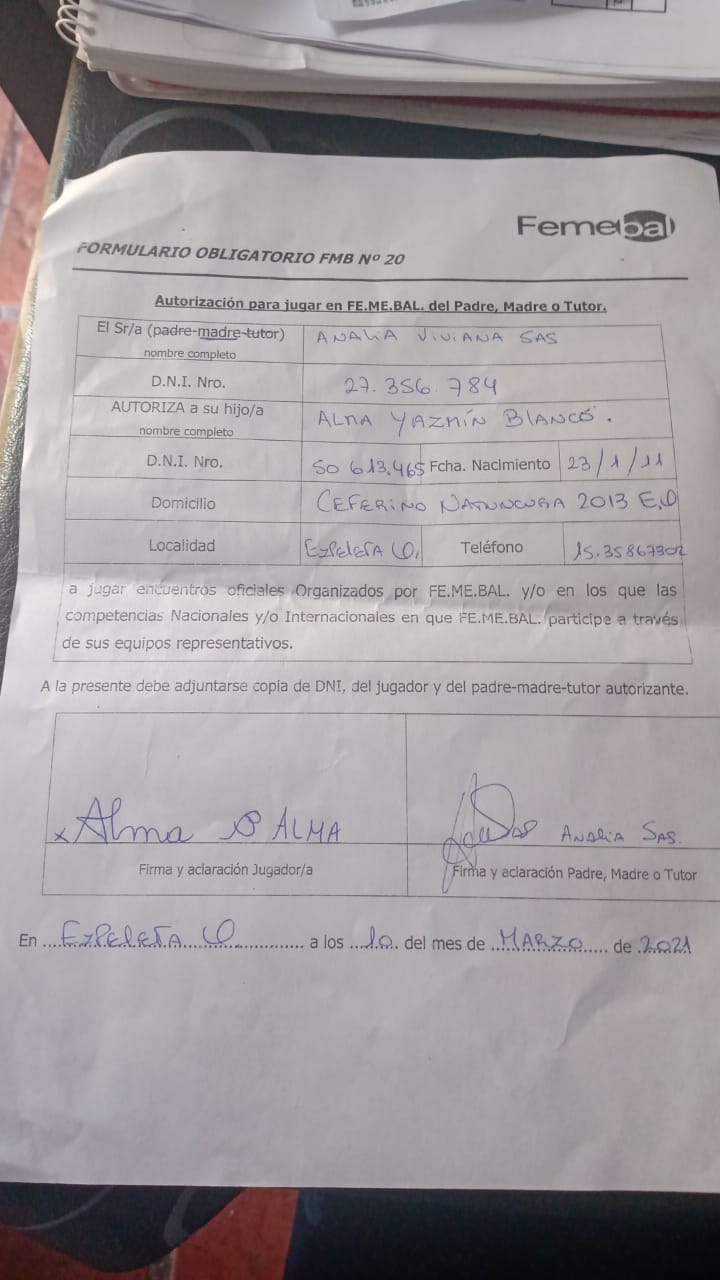 Femebal
FORMULARIO OBLIGATORIO FMB Nº 20
Autorización para jugar en FE.ME.BAL. del Padre, Madre o Tutor.
El Sr/a (padre-madre-tutor) ANALIA VIVIANA SAS
nombre completo
D.N.I. Nro. 27.356.784
AUTORIZA a su hijo/a ALMA YAZMÍN BLANCO.
nombre completo
D.N.I. Nro. 50 613.465 Fcha. Nacimiento 23/1/11
Domicilio CEFERINO NAMUNCURA 2013 E,Q
Localidad EZPELETA Q, Teléfono 15.35867302
a jugar encuentros oficiales Organizados por FE.ME.BAL. y/o en los que las
competencias Nacionales y/o Internacionales en que FE.ME.BAL. participe a través
de sus equipos representativos.
A la presente debe adjuntarse copia de DNI, del jugador y del padre-madre-tutor autorizante.
x Alma ALMA ANALIA SAS.
Firma y aclaración Jugador/a Firma y aclaración Padre, Madre o Tutor
En ....EZPELETA..Q.............. a los ...10.. del mes de ..MARZO..... de .2021